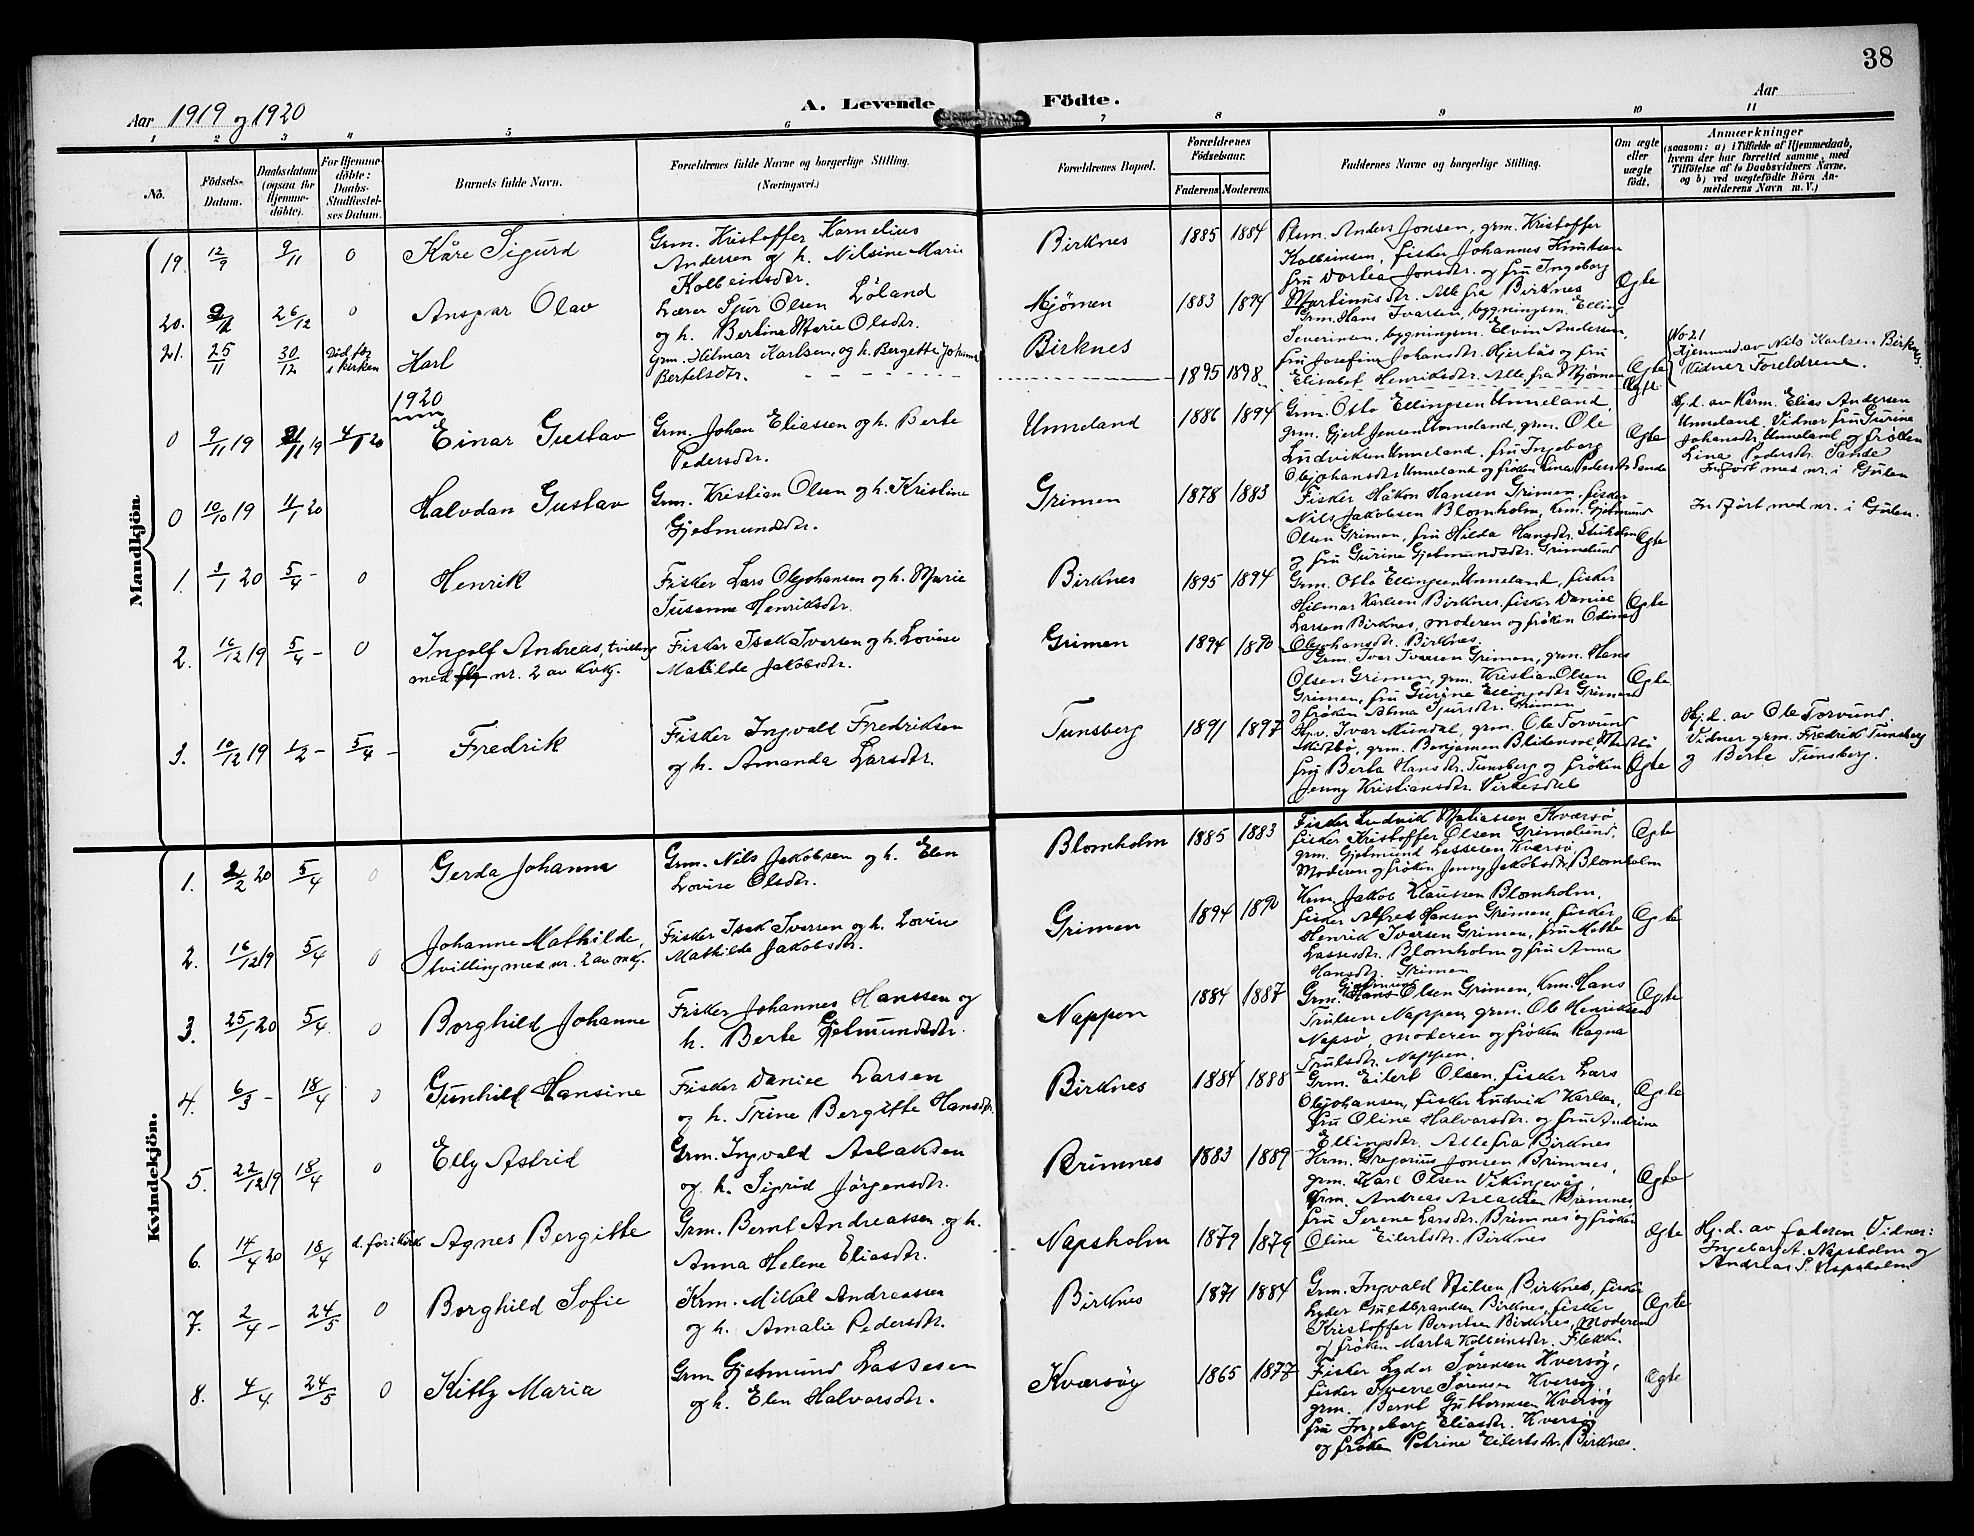 38
Aar 1919 og 1920
A. Levende
Födte.
Aar
1 2 3 4 5 6 7 8 9 10 11
No.
Födsels-
Datum.
Daabsdatum
(ogsaa for
Hjemme-
döbte).
For Hjemme-
döbte:
Daabs-
Stadfæstel-
ses Datum.
Barnets fulde Navn.
Forældrenes fulde Navne og borgerlige Stilling.
(Næringsvei.)
Forældrenes Bopæl.
Forældrenes
Födselsaar.
Faderens. Moderens.
Faddernes Navne og borgerlige Stilling.
Om ægte
eller
uægte
født.
Anmærkninger
(saasom: a) i Tilfælde af Hjemmedaab,
hvem der har forrettet samme, med
Tilföielse af to Daabsvidners Navne.
og b) ved uægtefödte Börn An-
melderens Navn m. V.)
Mandkjön.
19. 12/9 9/11 0 Kåre Sigurd
Grm. Kristoffer Kornelius
Andersen og h. Nilsine Marie
Kolbeinsdtr.
Birknes 1885 1884
Plsm. Anders Jonsen, grm. Kristoffer
Kolbeinsen, fisker Johannes Knutsen
fru Dortea Jonsdtr. og fru Ingeborg
Martinusdtr. Alle fra Birknes
Ægte
20. 26/12 0 Ansgar Olav
Lærer Sjur Olsen Løland
og h. Bertina Marie Olsdtr.
Mjømen 1883 1894
Grm. Hans Ivarsen, bygningsm. Elling
Severinsen, bygningsm. Elvin Andersen,
fru Josefine Johansdtr. Hjertås og fru
Elisabet Henriksdtr. Alle fra Mjømen
Ægte
21. 25/11 30/12 Død før i kirken Karl
Grm. Hilmar Karlsen, og h. Bergette Johanne
Bertelsdtr.
Birknes 1895 1898
Ægte
No 21
Hjemmed. av Nils Karlsen Birknes.
Vidner Foreldrene.
1920
0 9/11 19 /11 19 4/1 20 Einar Gustav
Grm. Johan Eliassen og h. Berte
Pedersdtr.
Unneland 1886 1894
Grm. Otto Ellingsen Unneland,
grm. Gjert Jensen Unneland, grm. Ole
Ludviksen Unneland. fru Ingeborg
Olejohansdtr Unneland og frøken Lina Pedersdtr Sande
Ægte
Hj.d. av Kårm. Elias Andersen
Unneland. Vidner fru Gurine
Johansdtr. Unneland og frøken
Lina Pedersdtr Sande
Indført med nr. i Gulen
0 10/10 19 4/1 20 Halvdan Gustav
Grm. Kristian Olsen og h. Kristine
Gjetmundsdtr.
Grimen 1878 1883
Fisker Håkon Hansen Grimen, fisker
Nils Jakobsen Blomholm, krm. Gjetmund
Olsen Grimen, fru Hilda Hansdtr.
og fru Gurine Gjetmundsdtr. Grimelund
Ægte
Indført med nr. i Gulen.
1. 3/1 20 5/4 - 0 Henrik
Fisker Lars Olejohansen og h. Marie
Susanne Henriksdtr.
Birknes 1895 1894
Grm. Otto Ellingsen Unneland, fisker
Hilmar Karlsen Birknes, fisker Daniel
Larsen Birknes, moderen og frøken Odine
Olejohansdtr. Birknes.
Ægte
2. 16/12 19 5/4 - 0 Ingolf Andreas, tvilling
med nr. 2 av kvkj.
Fisker Isak Iversen og h. Lovise
Matilde Jakobsdtr.
Grimen 1894 1890
Grm. Ivar Ivarsen Grimen, grm. Hans
Olsen Grimen, grm. Kristian Olsen
Grimen, fru Gurine Ellingsdtr Grimen
og frøken Alma Sjursdtr. Grimen
Ægte
3. 10/12 19 1/2 - 5/4 - Fredrik
Fisker Ingvald Fredriksen
og h. Amanda Larsdtr.
Tunsberg 1891 1897
Ivar Mundal, grm. Ole Torvund
grm. Benjamin
fru Berta Hansdtr. Tunsberg og frøken
Jenny Kristiansdtr. Virkesdal
Ægte
Hj.d. av Ole Torvund.
Vidner grm. Fredrik Tunsberg
og Berte Tunsberg.
Kvindekjön.
1. 2/2 20 5/4 0 Gerda Johanne
Grm. Nils Jakobsen og h. Elen
Lovise Olsdtr.
Blomholm 1885 1883
Fisker Ludvik Matiassen Kværsø,
fisker Kristoffer Olsen Grimelund,
grm. Gjetmund Lassesen Kværsø,
Moderen og frøken Jenny Jakobsdtr. Blomholm
Ægte
2. 16/12 19 5/4 0 Johanne Mathilde,
tvilling med nr. 2 av mkj.
Fisker Isak Iversen og h. Lovise
Mathilde Jakobsdtr.
Grimen 1894 1890
Krm. Jakob Klaussen Blomholm,
fisker Alfred Hansen Grimen, fisker
Henrik Ivarsen Grimen, fru Mette
Lassesdtr. Blomholm og fru Anna
Hansdtr. Grimen
Ægte
3. 25/1 20 5/4 0 Borghild Johanne
Fisker Johannes Hanssen og
h. Berte Gjetmundsdtr.
Nappen 1884 1887
Gjetmund
Grm. Hans Olsen Grimen, Krm. Hans
Trulsen Nappen, grm. Ole Henriksen
Napsø, moderen og frøken Ragna
Trulsdtr. Nappen.
Ægte
4. 6/3 - 18/4 0 Gunhild Hansine
Fisker Daniel Larsen
og h. Trine Bergitte Hansdtr.
Birknes 1884 1888
Grm. Eilert Olsen, fisker Lars
Olejohansen, fisker Ludvik Karlsen,
fru Oline Halvorsdtr. og fru Andrine
Ellingsdtr. Alle fra Birknes
Ægte
5. 22/12 19 18/4 0 Elly Astrid
Grm. Ingvald Aslaksen
og h. Sigrid Jørgensdtr.
Brimnes 1883 1889
Krm. Gregorius Jonsen Brimnes,
grm. Karl Olsen Vikingevåg,
Grm. Andreas Aslaksen Brimnes
fru Serene Larsdtr. Brimnes og frøken
Oline Eilertsdtr. Birknes
Ægte
6. 14/4 20 18/4 d. før i kirk Agnes Bergitte
Grm. Bernt Andreassen og h.
Anna Helene Eliasdtr.
Napsholm 1879 1879
Ægte
Hj.d. av faderen Vidner:
Ingeborg A. Napsholm og
Andreas S. Napsholm
7. 2/4 - 24/5 0 Borghild Sofie
Krm. Mikal Andreassen
og h. Amalie Pedersdtr.
Birknes 1871 1884
Grm. Ingvald Nilsen Birknes, fisker
Lyder Guldbrandsen Birknes, fisker
Kristoffer Berntsen Birknes, moderen
og frøken Marta Kolbeinsdtr. Flekke.
Ægte
8. 4/4 24/5 0 Kitty Maria
Grm Gjetmund Lassesen
og h. Elen Halvorsdtr.
Kværsøy 1865 1877
Fisker Lyder Sørensen Kversøy,
fisker Sverre Sørensen Kversøy,
grm. Bernt Guttormsen Kversøy
fru Ingeborg Eliasdtr. Kversøy
og frøken Petrine Eilertsdtr. Birknes.
Ægte